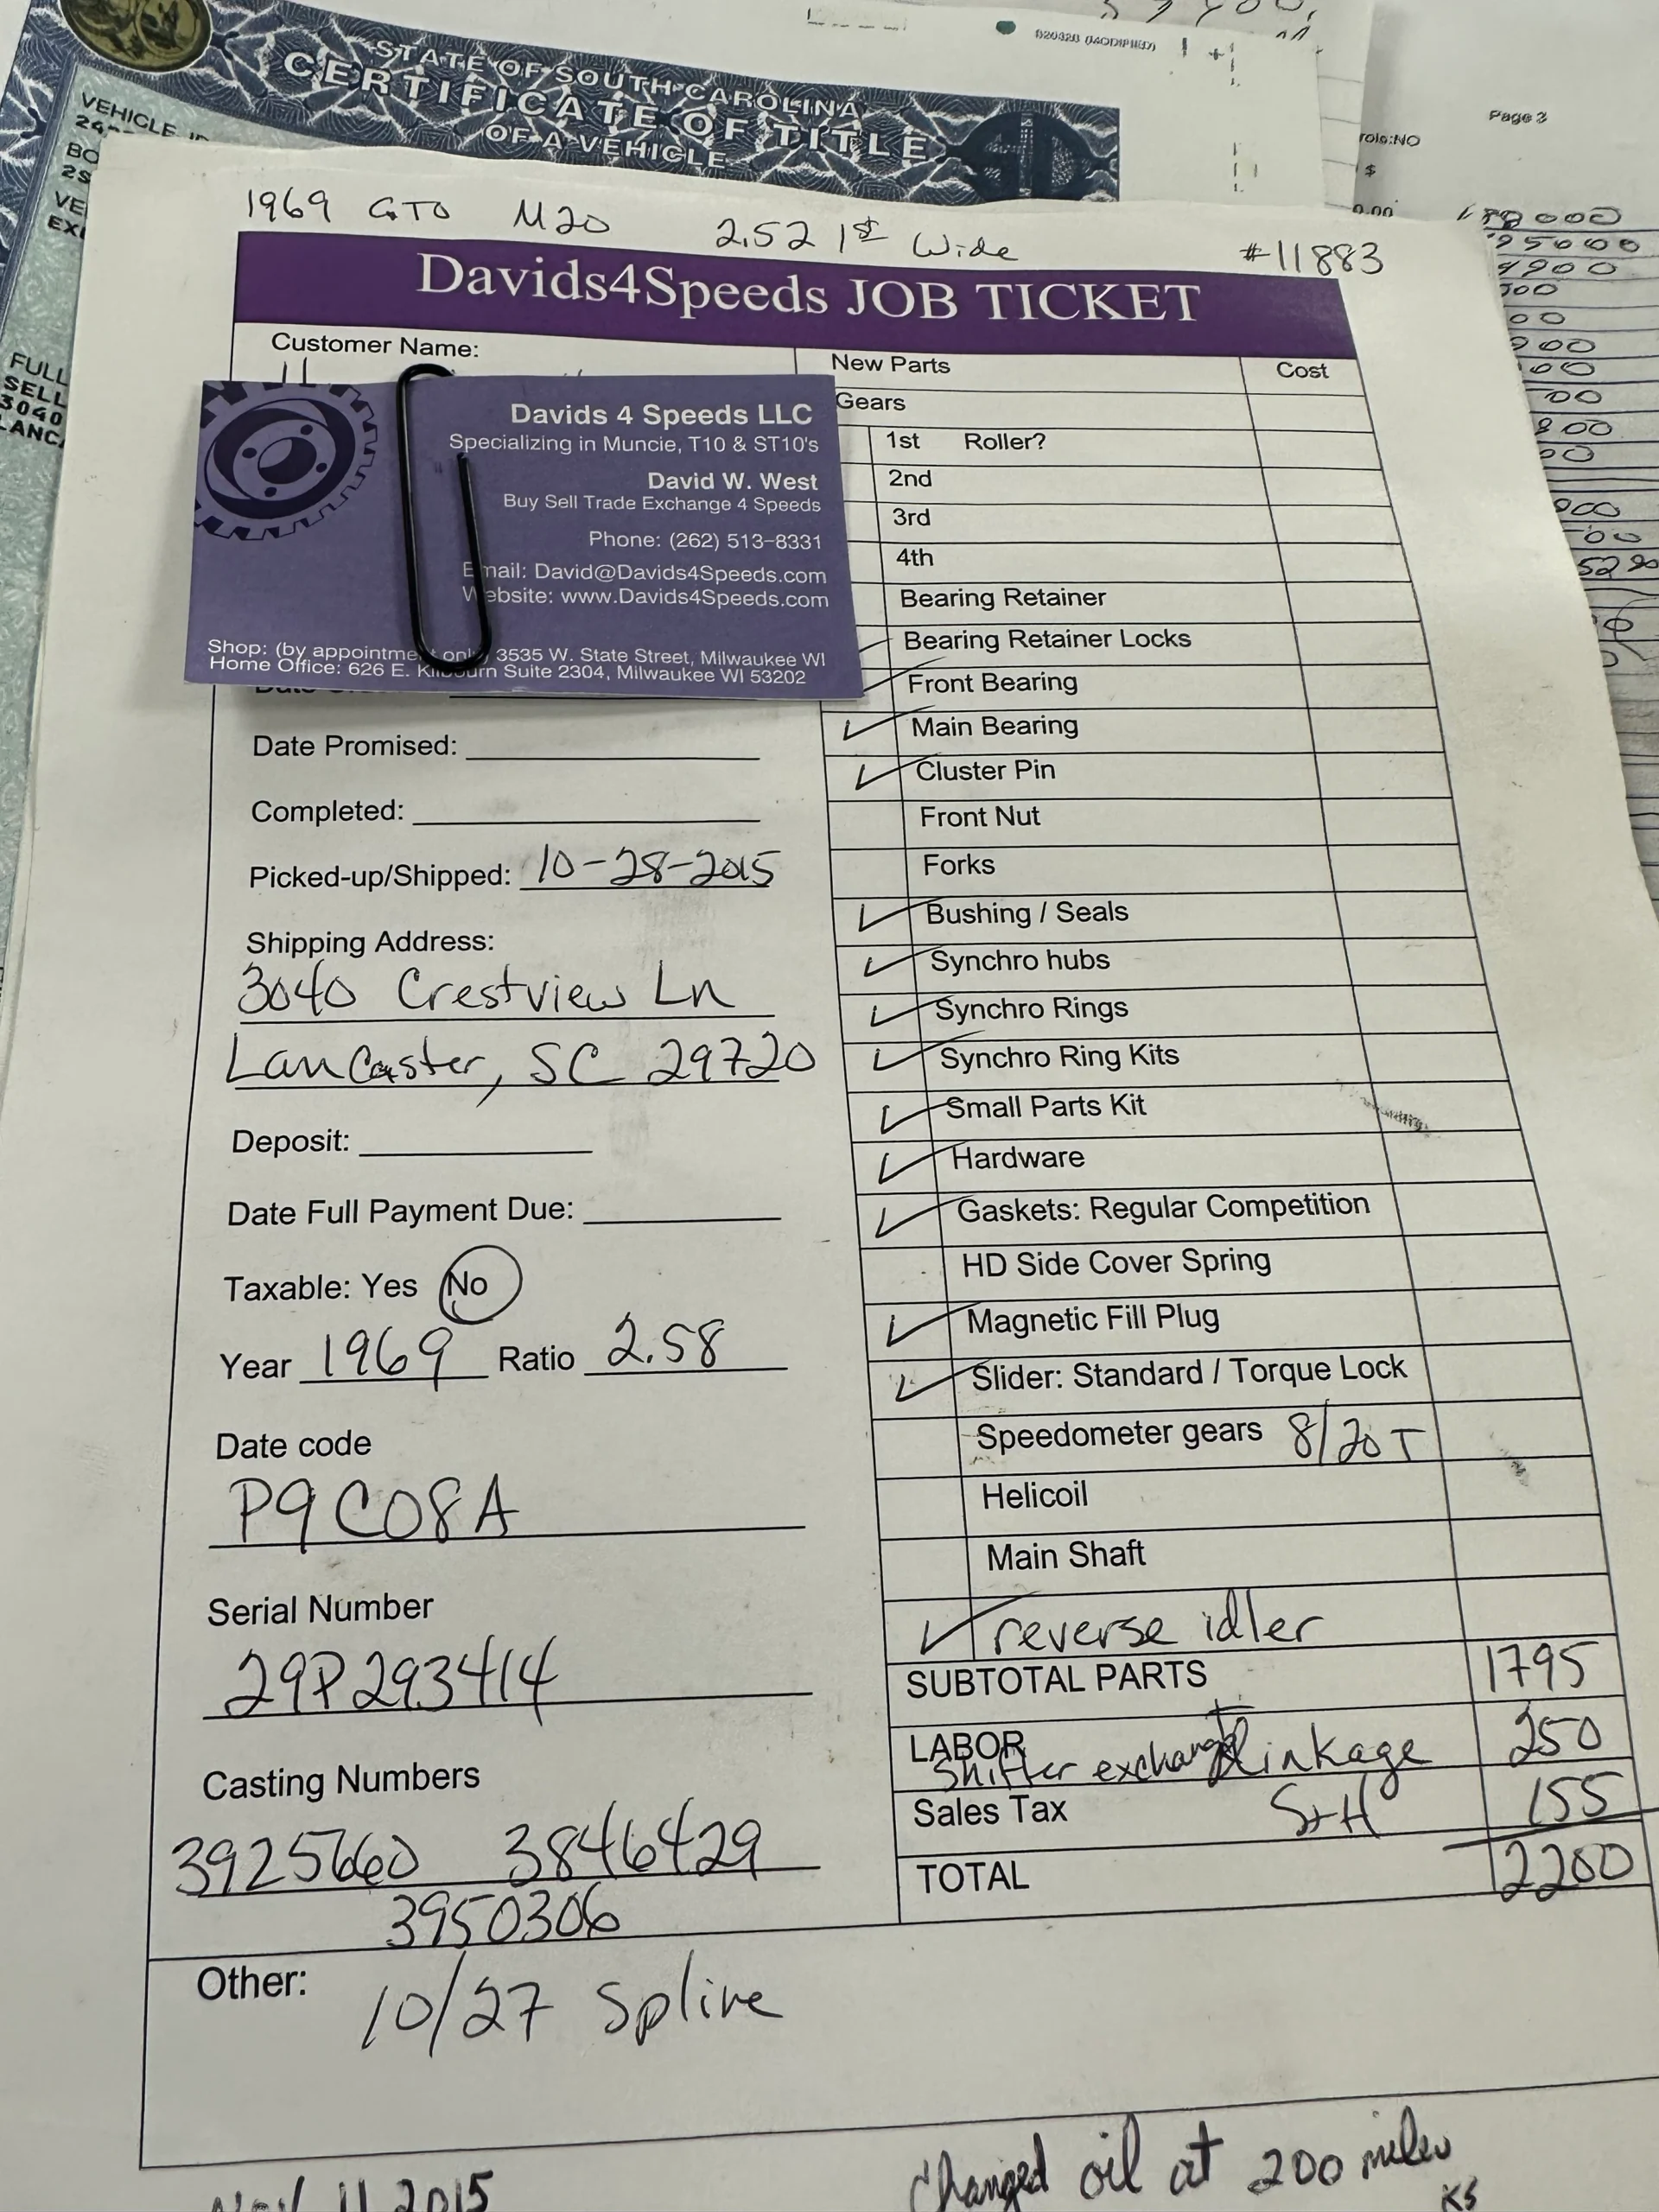 STATE OF SOUTH CAROLINA
CERTIFICATE OF TITLE
OF A VEHICLE
B2032B (MODIFIED)
Page 3
VEHICLE
BO
VE
EX
FULL
SELL
3040
LANC
1969 GTO M20 2.52 1st Wide #11883
Davids4Speeds JOB TICKET
Customer Name:
Davids 4 Speeds LLC
Specializing in Muncie, T10 & ST10's
David W. West
Buy Sell Trade Exchange 4 Speeds
Phone: (262) 513-8331
Email: David@Davids4Speeds.com
Website: www.Davids4Speeds.com
Shop: (by appointment only) 3535 W. State Street, Milwaukee WI
Home Office: 626 E. Kilbourn Suite 2304, Milwaukee WI 53202
Date Promised:
Completed:
Picked-up/Shipped: 10-28-2015
Shipping Address:
3040 Crestview Ln
Lancaster, SC 29720
Deposit:
Date Full Payment Due:
Taxable: Yes No
Year 1969 Ratio 2.58
Date code
P9C08A
Serial Number
29P293414
Casting Numbers
3925660 3846429
3950306
New Parts Cost
Gears
1st Roller?
2nd
3rd
4th
Bearing Retainer
Bearing Retainer Locks
Front Bearing
Main Bearing
Cluster Pin
Front Nut
Forks
Bushing / Seals
Synchro hubs
Synchro Rings
Synchro Ring Kits
Small Parts Kit
Hardware
Gaskets: Regular Competition
HD Side Cover Spring
Magnetic Fill Plug
Slider: Standard / Torque Lock
Speedometer gears 8/20T
Helicoil
Main Shaft
reverse idler
SUBTOTAL PARTS 1795
LABOR 250
Shifter exchange + linkage
Sales Tax S+H 155
TOTAL 2200
Other: 10/27 Spline
Changed oil at 200 miles
KS
Nov 11 2015